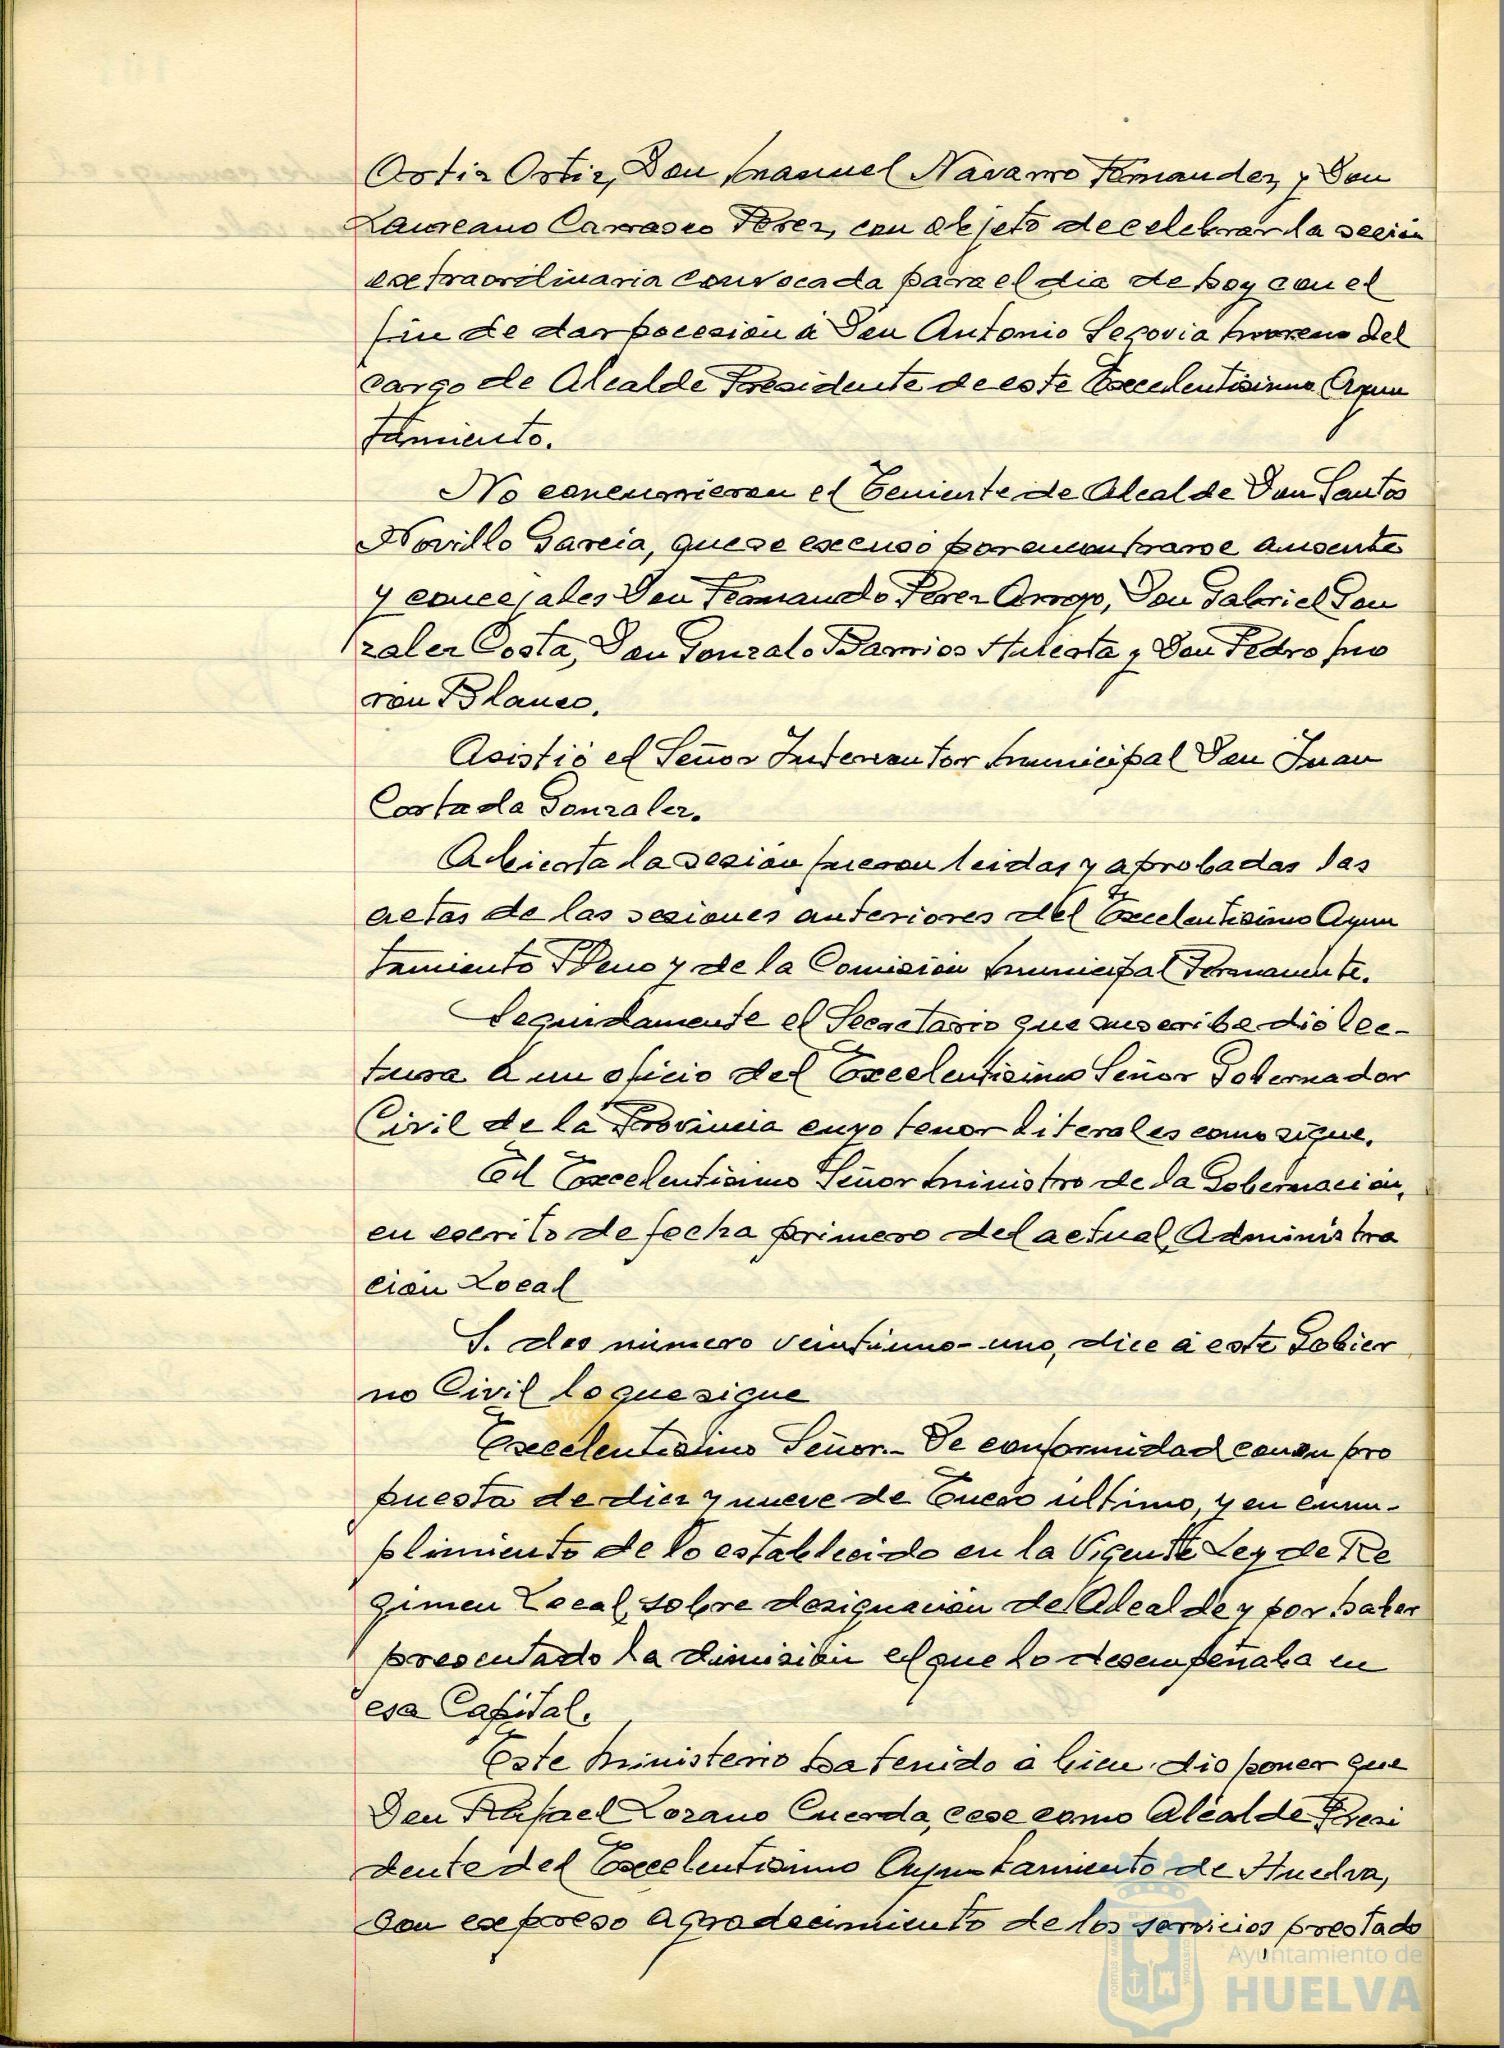 Ortiz Ortiz, Don Manuel Navarro Fernandez, y Don
Laureano Carrasco Perez, con objeto de celebrar la sesión
extraordinaria convocada para el dia de hoy con el
fin de dar pocesión á Don Antonio Segovia Moreno del
cargo de Alcalde Presidente de este Excelentisimo Ayun
tamiento.
No concurrieron el Teniente de Alcalde Don Santos
Novillo Garcia, que se excusó por encontrarse ausente
y concejales Don Fernando Perez Arroyo, Don Gabriel Gon
zalez Costa, Don Gonzalo Barrios Huerta y Don Pedro Mo
ron Blanco.
Asistió el Señor Interventor Municipal Don Juan
Cortada Gonzalez.
Abierta la sesión fueron leidas y aprobadas las
actas de las sesiones anteriores del Excelentisimo Ayun
tamiento Pleno y de la Comisión Municipal Permanente.
Seguidamente el Secretario que suscribe dió lec-
tura á un oficio del Excelentisimo Señor Gobernador
Civil de la Provincia cuyo tenor literal es como sigue.
El Excelentisimo Señor Ministro de la Gobernación,
en escrito de fecha primero del actual, Administra
ción Local
S. dos número veintiuno-uno, dice á este Gobier
no Civil lo que sigue
Excelentisimo Señor.- De conformidad con su pro
puesta de diez y nueve de Enero último, y en cum-
plimiento de lo establecido en la Vigente Ley de Re
gimen Local, sobre designación de Alcalde y por haber
presentado la dimisión el que lo desempeñaba en
esa Capital.
Este Ministerio ha tenido á bien disponer que
Don Rafael Lozano Cuerda, cese como Alcalde Presi
dente del Excelentisimo Ayuntamiento de Huelva,
con expreso agradecimiento de los servicios prestado
Ayuntamiento de
HUELVA